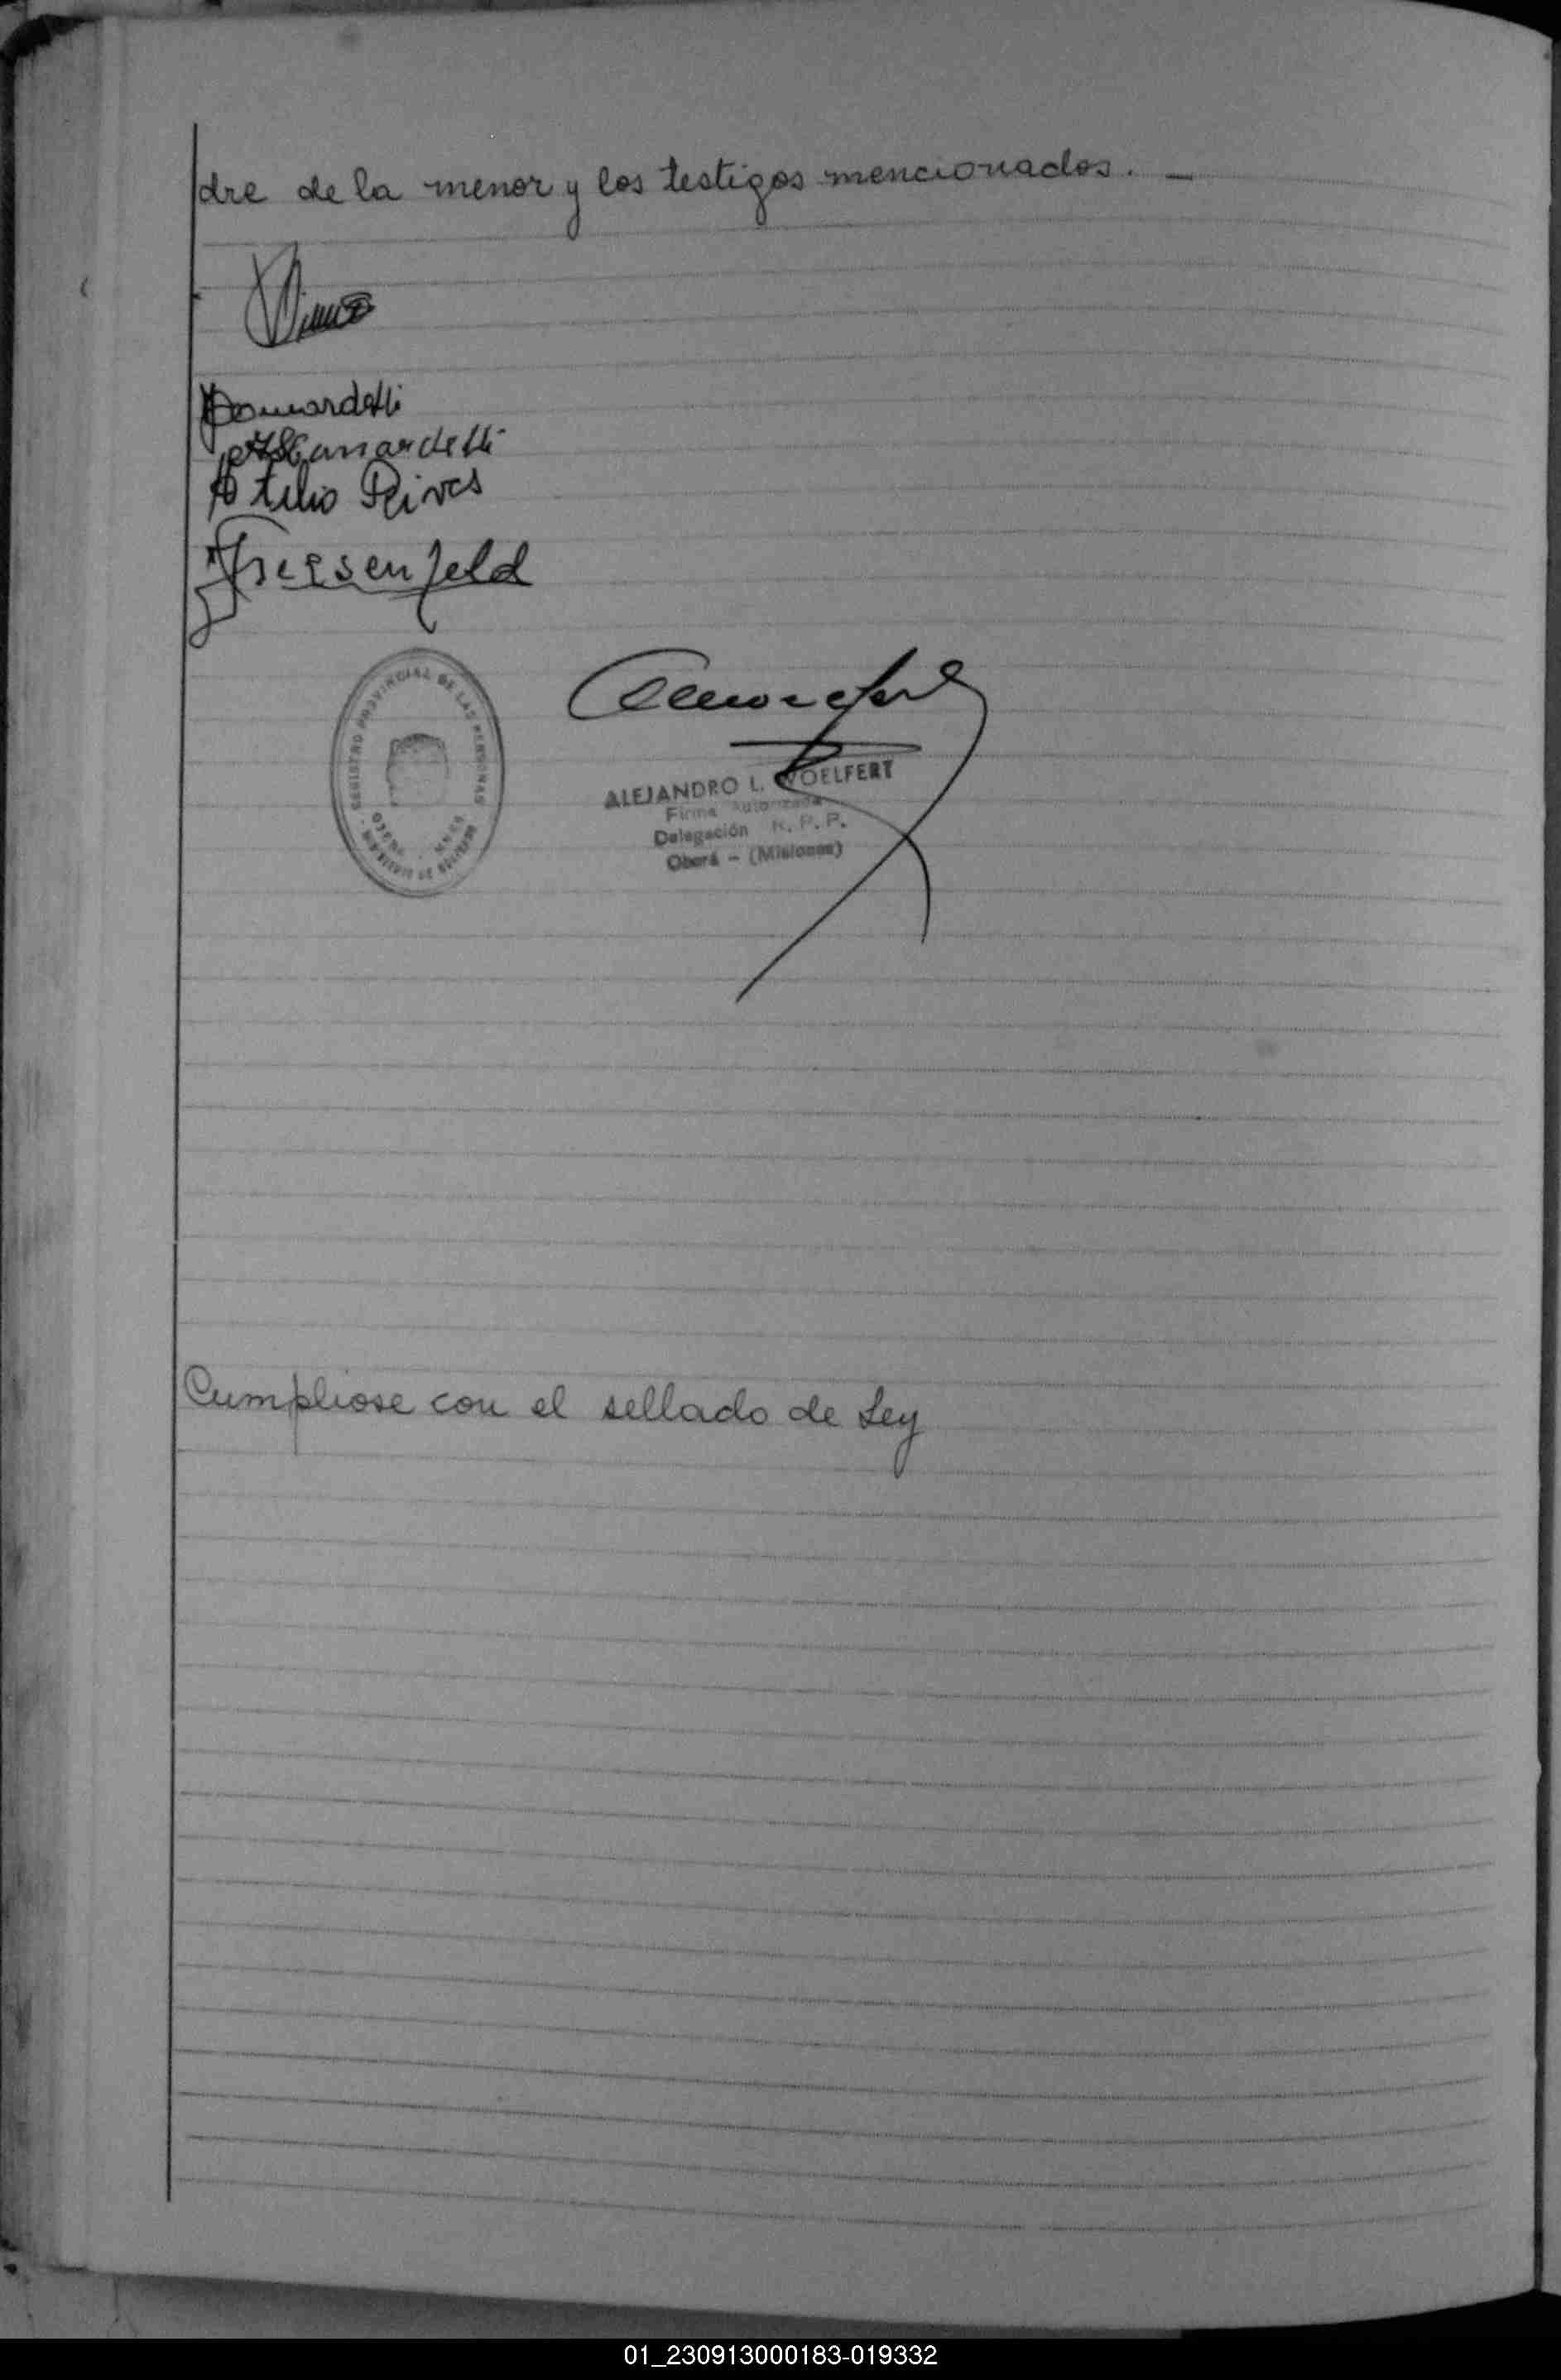 dre de la menor y los testigos mencionados. —
Atilio Rivas
Friesenfeld
REGISTRO PROVINCIAL DE LAS PERSONAS
ALEJANDRO L. WOELFERT
Firma Autorizada
Delegación R. P. P.
Oberá - (Misiones)
Cumpliose con el sellado de Ley
01_230913000183-019332